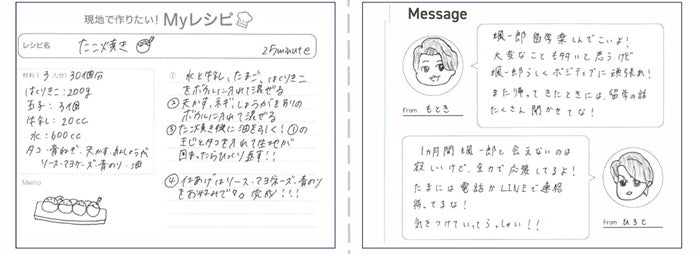 現地で作りたい! Myレシピ
レシピ名
たこ焼き
25minute
材料(3人分) 30個分
はくりきこ:200g
玉子:3個
牛乳:20cc
水:600cc
タコ・青ねぎ・天かす・紅しょうが
ソース・マヨネーズ・青のり・油
Memo
① 水と牛乳、たまご、はくりきこ
をボウルに入れて混ぜる
②天かす、ネギ、しょうがを別の
ボウルに入れて混ぜる
③たこ焼き機に油を引く!①の
生じとタコを入れて生地が
固まったらひっくり返す!!
④仕あげはソース・マヨネーズ・青のり
をお好みで 完成!!!
Message
颯一郎 留学楽しんでこいよ!
大変なことも多いと思うけど
颯一郎らしくポジティブに頑張れ!
また帰ってきたときには、留学の話
たくさん聞かせてな!
From もとき
1カ月間 颯一郎と会えないのは
寂しいけど、全力で応援してるよ!
たまには電話かLINEで連絡
待ってるな!
気をつけていってらっしゃい!!
From ひろと